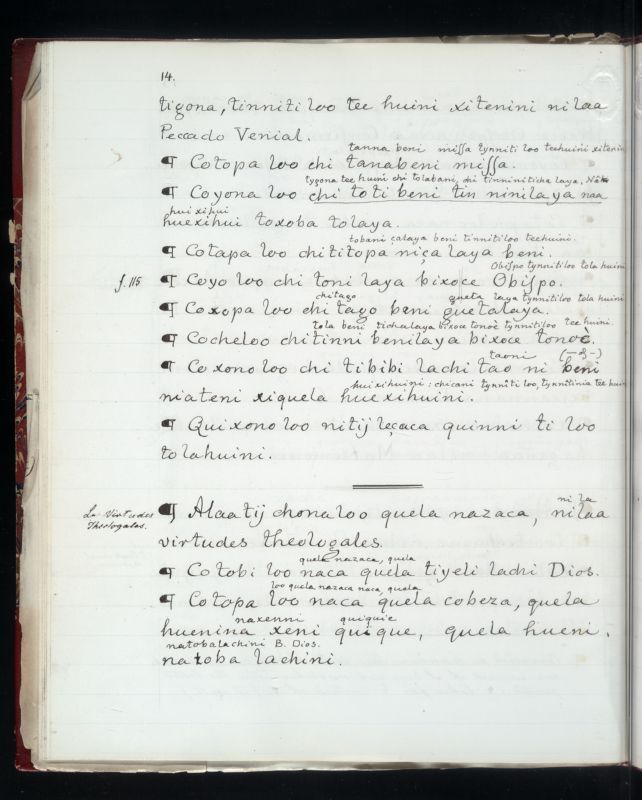 14.
tigona, tinniti loo tee huini xitenini nilaa
Peccado Venial.
tanna beni missa tynniti loo teehuini xitenin
¶ Cotopa loo chi tanabeni missa.
tygona tee huini chi tolabani, chi tinniniticha laya.
¶ Coyona loo chi toti beni tin ninilaya naa
hui xihui
huexihui toxoba tolaya.
tobani calaya beni tinnitiloo teehuini.
¶ Cotapa loo chititopa niça laya beni.
Obispo tynnitiloo tola huini
f. 115 ¶ Coyo loo chi toni laya bixoce Obispo.
chitago queta laya tynnitiloo tola huini
¶ Coxopa loo chi tago beni guetalaya.
tola beni tichalaya bixoce tonoè tynnitiloo tee huini.
¶ Cocheloo chitinni benilaya bixoce tonoè.
taoni (—&—)
¶ Coxono loo chi tibibi lachi tao ni beni
huixihuini: chicani tynniti loo, tynnitinia tee huini
niateni xiquela huexihuini.
¶ Quixono loo nitij leçaca quinni ti loo
tolahuini.
ni la
La Virtudes Theologales.
¶ Alaatij chonaloo quela nazaca, nilaa
virtudes theologales.
quela nazaca, quela
¶ Cotobi loo naca quela tiyeli lachi Dios.
loo quela nazaca naca, quela
¶ Cotopa loo naca quela cobeza, quela
naxenni quiquie
huenina xeni quique, quela hueni.
natobalachini B. Dios.
natoba lachini.